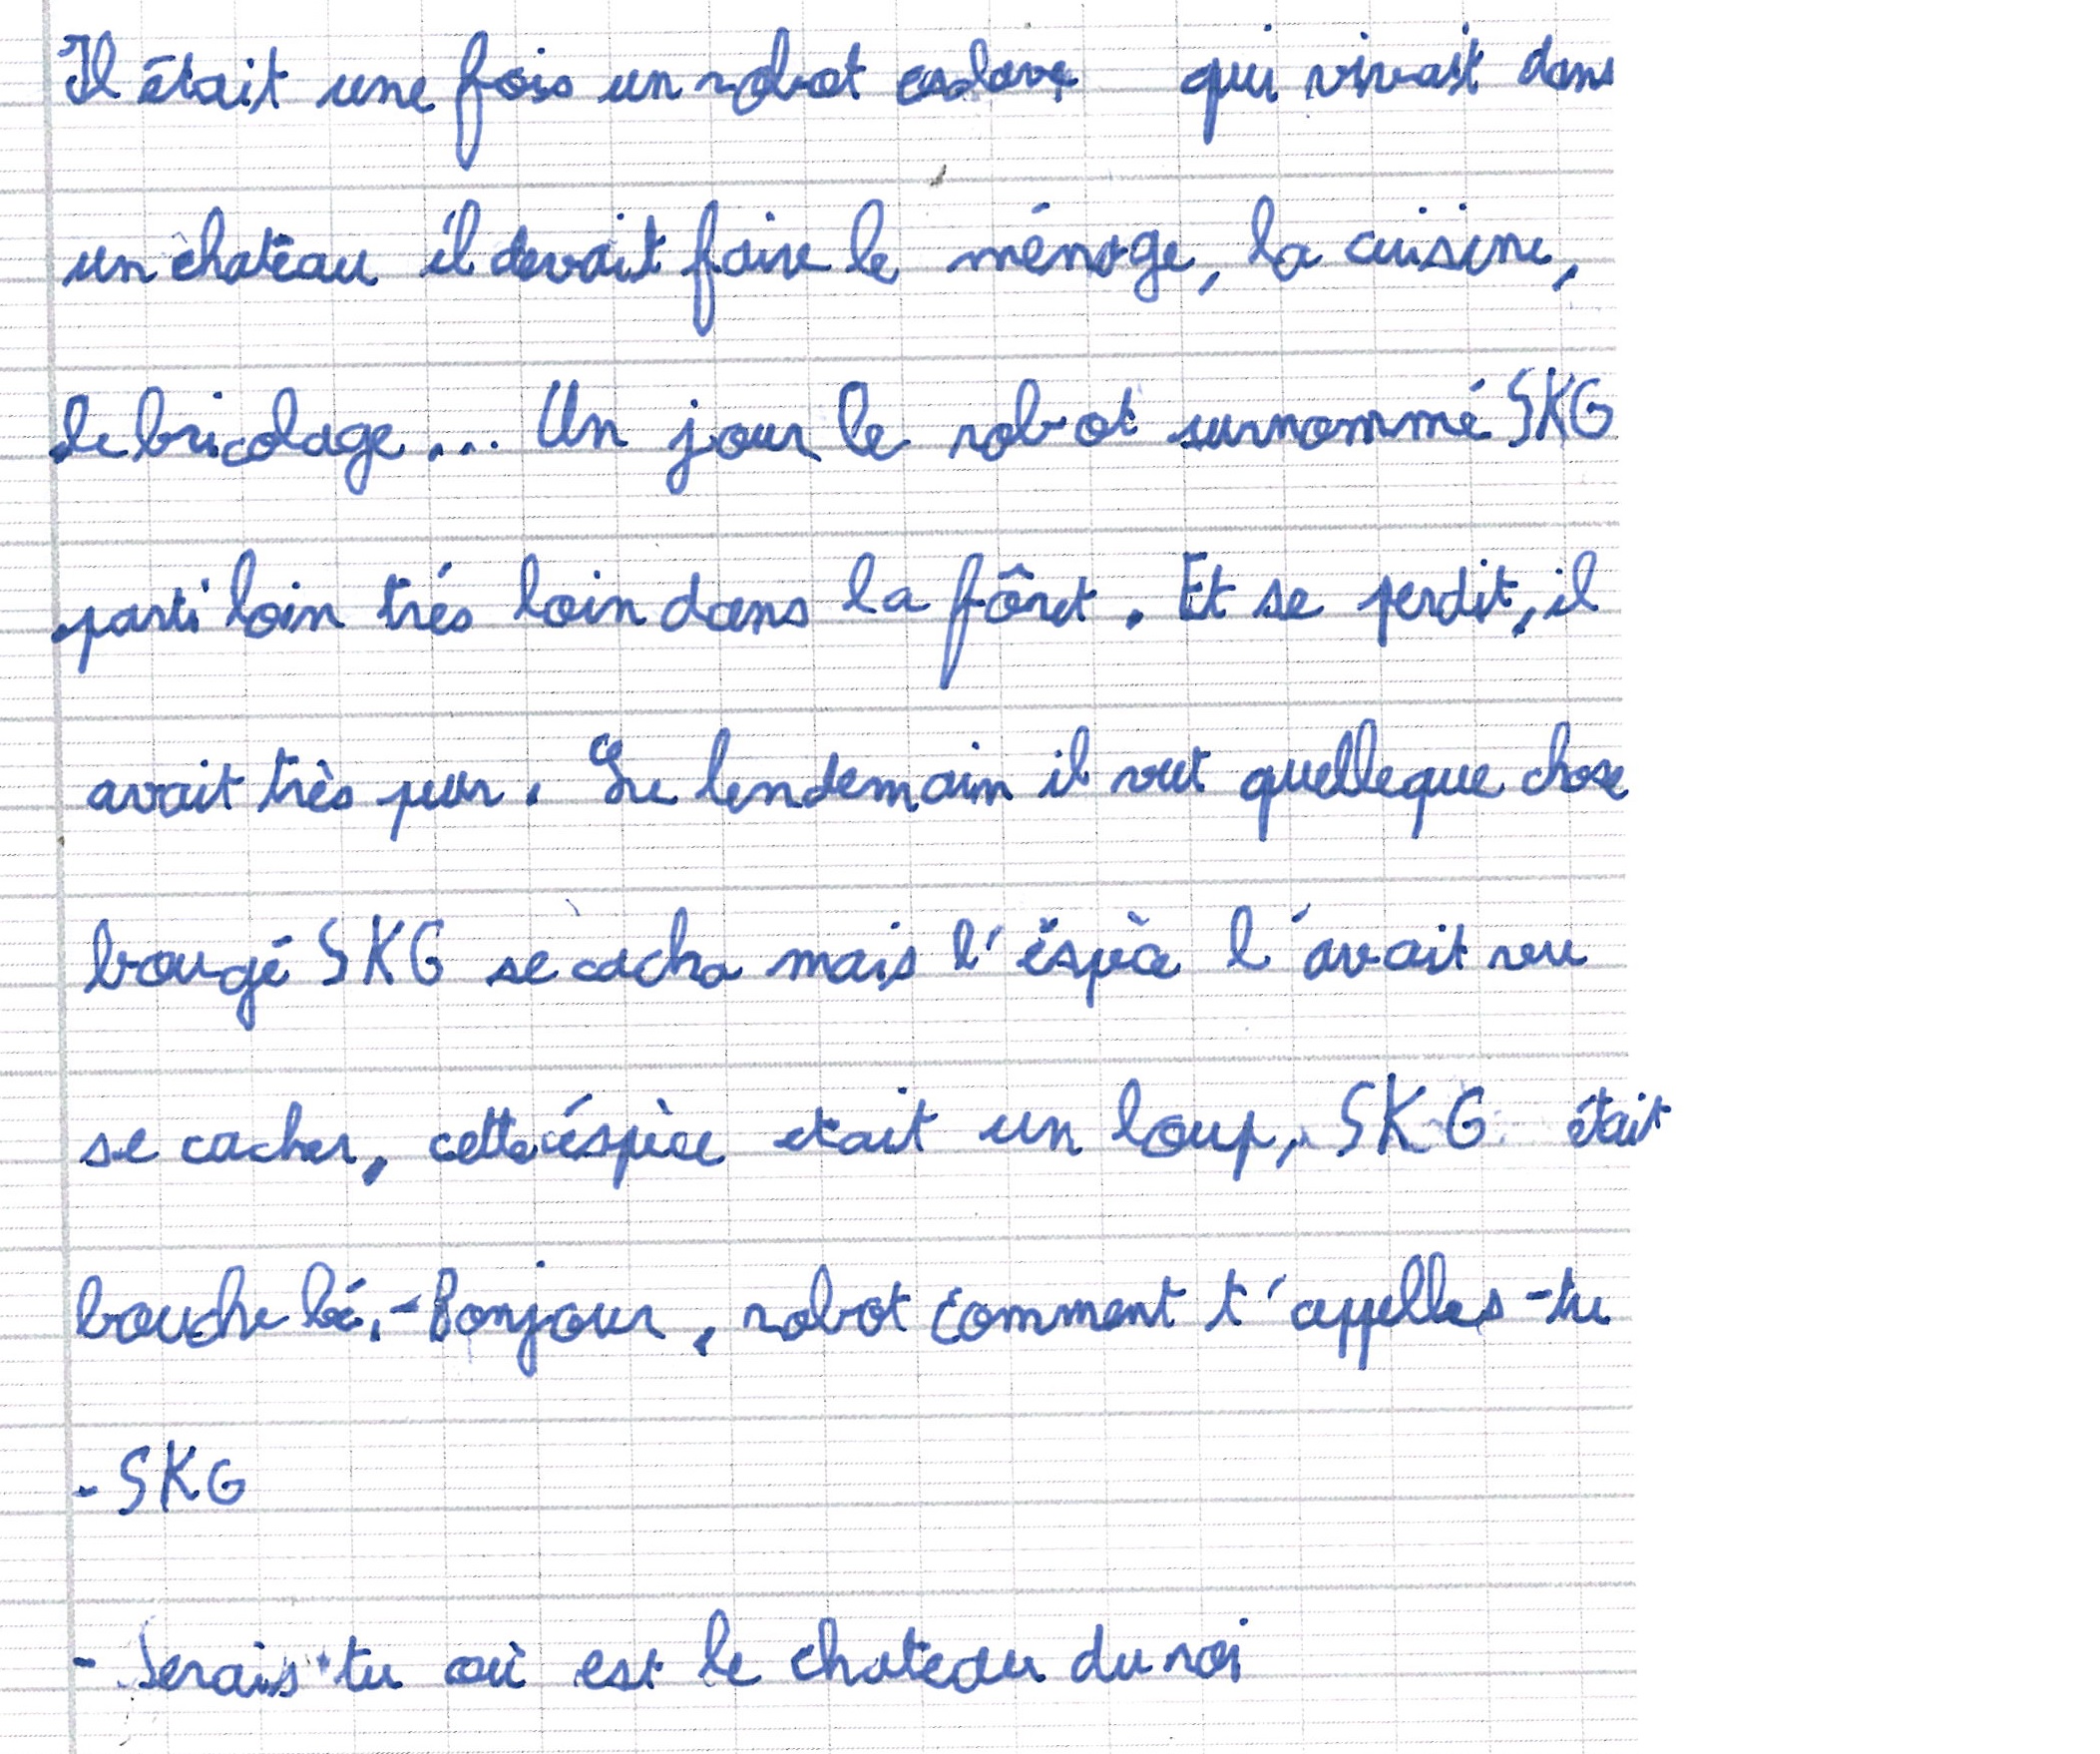 Il était une fois un robot esclave qui vivait dans
un chateau il devait faire le ménage, la cuisine,
le bricolage... Un jour le robot surnommé SKG
parti loin trés loin dans la fôret. Et se perdit, il
avait très peur. Le lendemain il vut quelleque chose
bougé SKG se cacha mais l'éspèce l'avait vu
se cacher, cette éspèce etait un loup, SKG était
bouche bé. - Bonjour, robot comment t'appelles-tu
- SKG
- Serais-tu où est le chateau du roi